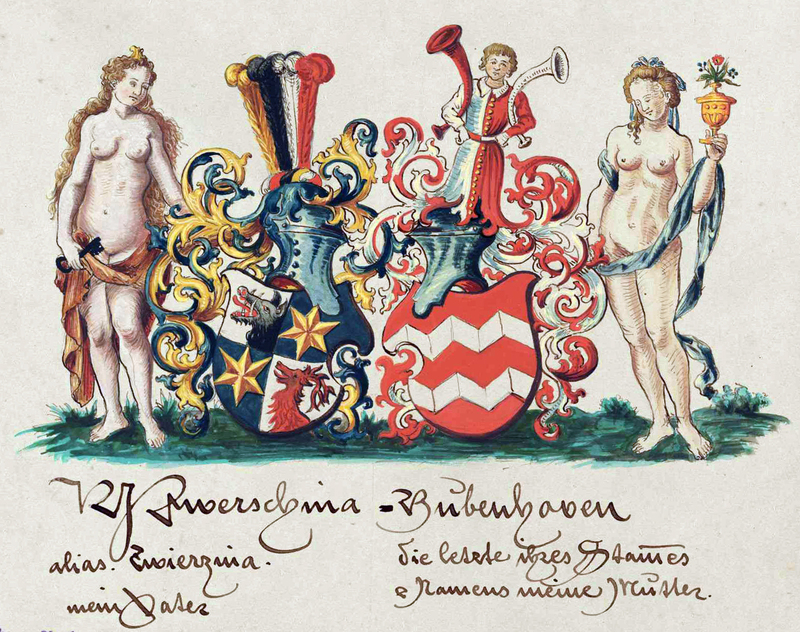 Zwerschina
alias. Zwierzina.
mein Vater
=Bubenhoven
die letzte ihres Stam̅es
& Namens meine Mutter.